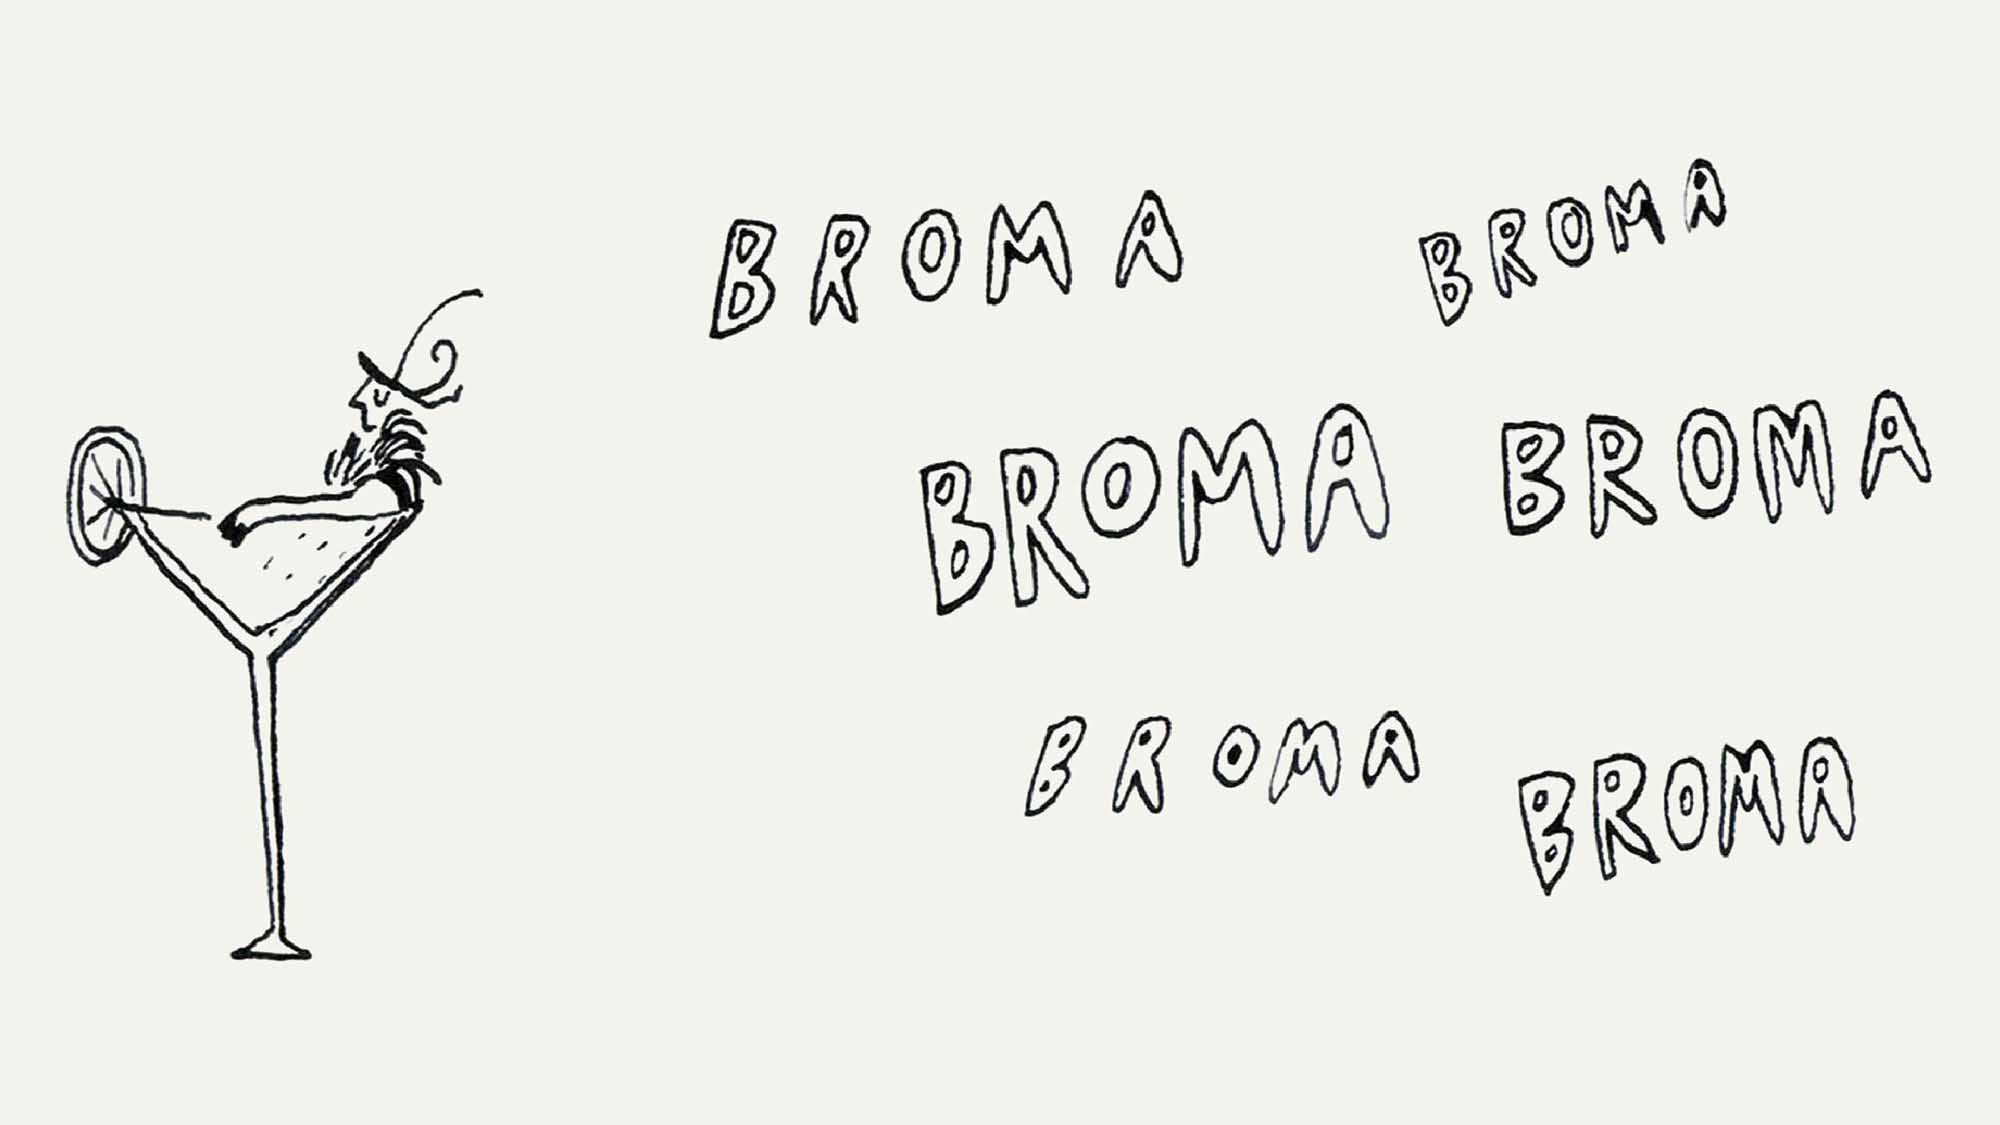 BROMA
BROMA
BROMA
BROMA
BROMA
BROMA